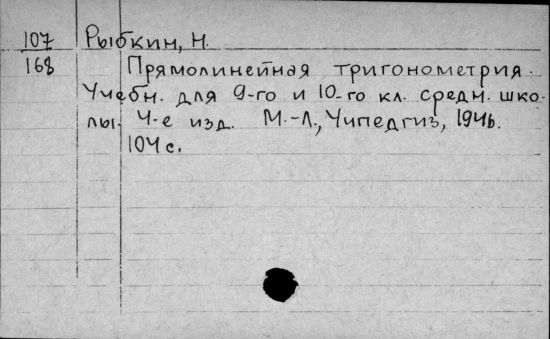 107 Рыбкин, Н.
168 Прямолинейная тригонометрия.
Учебн. для 9-го и 10-го кл. средн. шко-
лы. 4-е изд. М.-Л., Учпедгиз, 1946.
104 с.